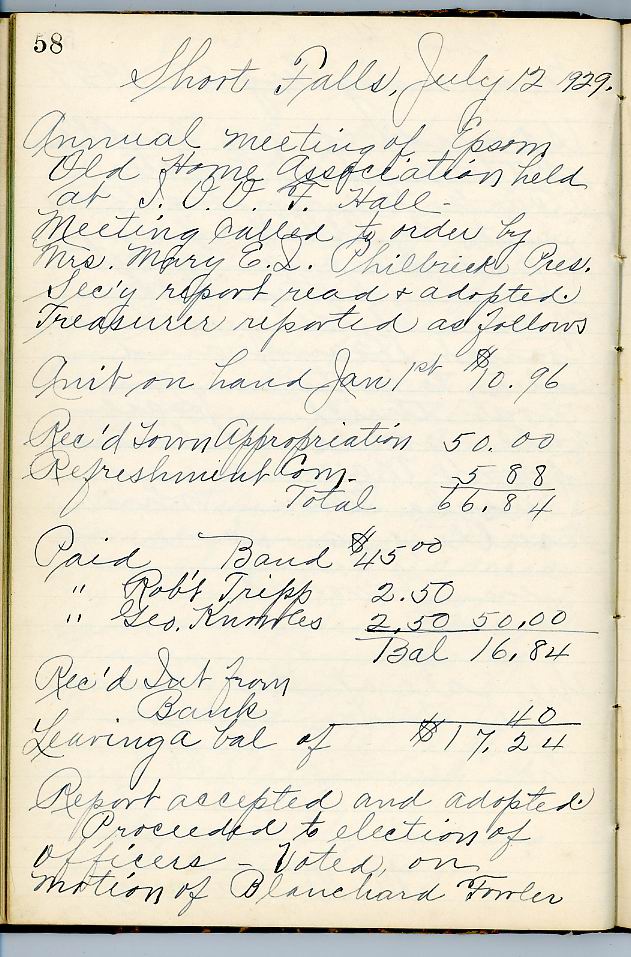 58
Short Falls, July 12 1929.
Annual meeting of Epsom
Old Home Association held
at I. O. O. F. Hall -
Meeting called to order by
Mrs. Mary E. L. Philbrick Pres.
Sec'y report read & adopted.
Treasurer reported as follows
Amt on hand Jan 1st $10.96
Rec'd Town Appropriation 50.00
Refreshment Com. 5 88
Total 66.84
Paid Band $45 00
" Rob't Tripp 2.50
" Geo. Knowles 2.50 50.00
Bal 16.84
Rec'd Int from
Bank 40
Leaving a bal of $17.24
Report accepted and adopted.
Proceeded to election of
officers - Voted, on
motion of Blanchard Fowler